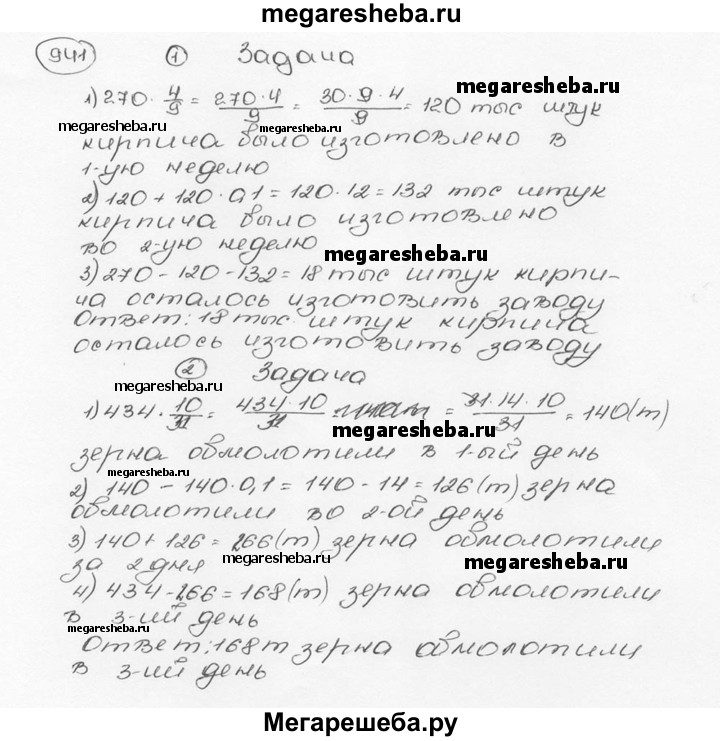 megaresheba.ru
941 1 Задача
1) 270 · 4/9 = 270·4/9 = 30·9·4/9 = 120 тыс штук
megaresheba.ru
megaresheba.ru megaresheba.ru
кирпича было изготовлено в
1-ую неделю
2) 120 + 120 · 0,1 = 120 + 12 = 132 тыс штук
кирпича было изготовлено
во 2-ую неделю
megaresheba.ru
3) 270 - 120 - 132 = 18 тыс штук кирпи-
ча осталось изготовить заводу
Ответ: 18 тыс штук кирпича
осталось изготовить заводу
2 Задача
megaresheba.ru
1) 434 · 10/31 = 434·10/31 = 31·14·10/31 = 140 (т)
megaresheba.ru
зерна обмолотили в 1-ый день
megaresheba.ru
2) 140 - 140·0,1 = 140 - 14 = 126 (т) зерна
обмолотили во 2-ой день
3) 140 + 126 = 266 (т) зерна обмолотили
megaresheba.ru
за 2 дня
4) 434 - 266 = 168 (т) зерна обмолотили
в 3-ий день
megaresheba.ru
Ответ: 168 т зерна обмолотили
в 3-ий день
Мегарешеба.ру